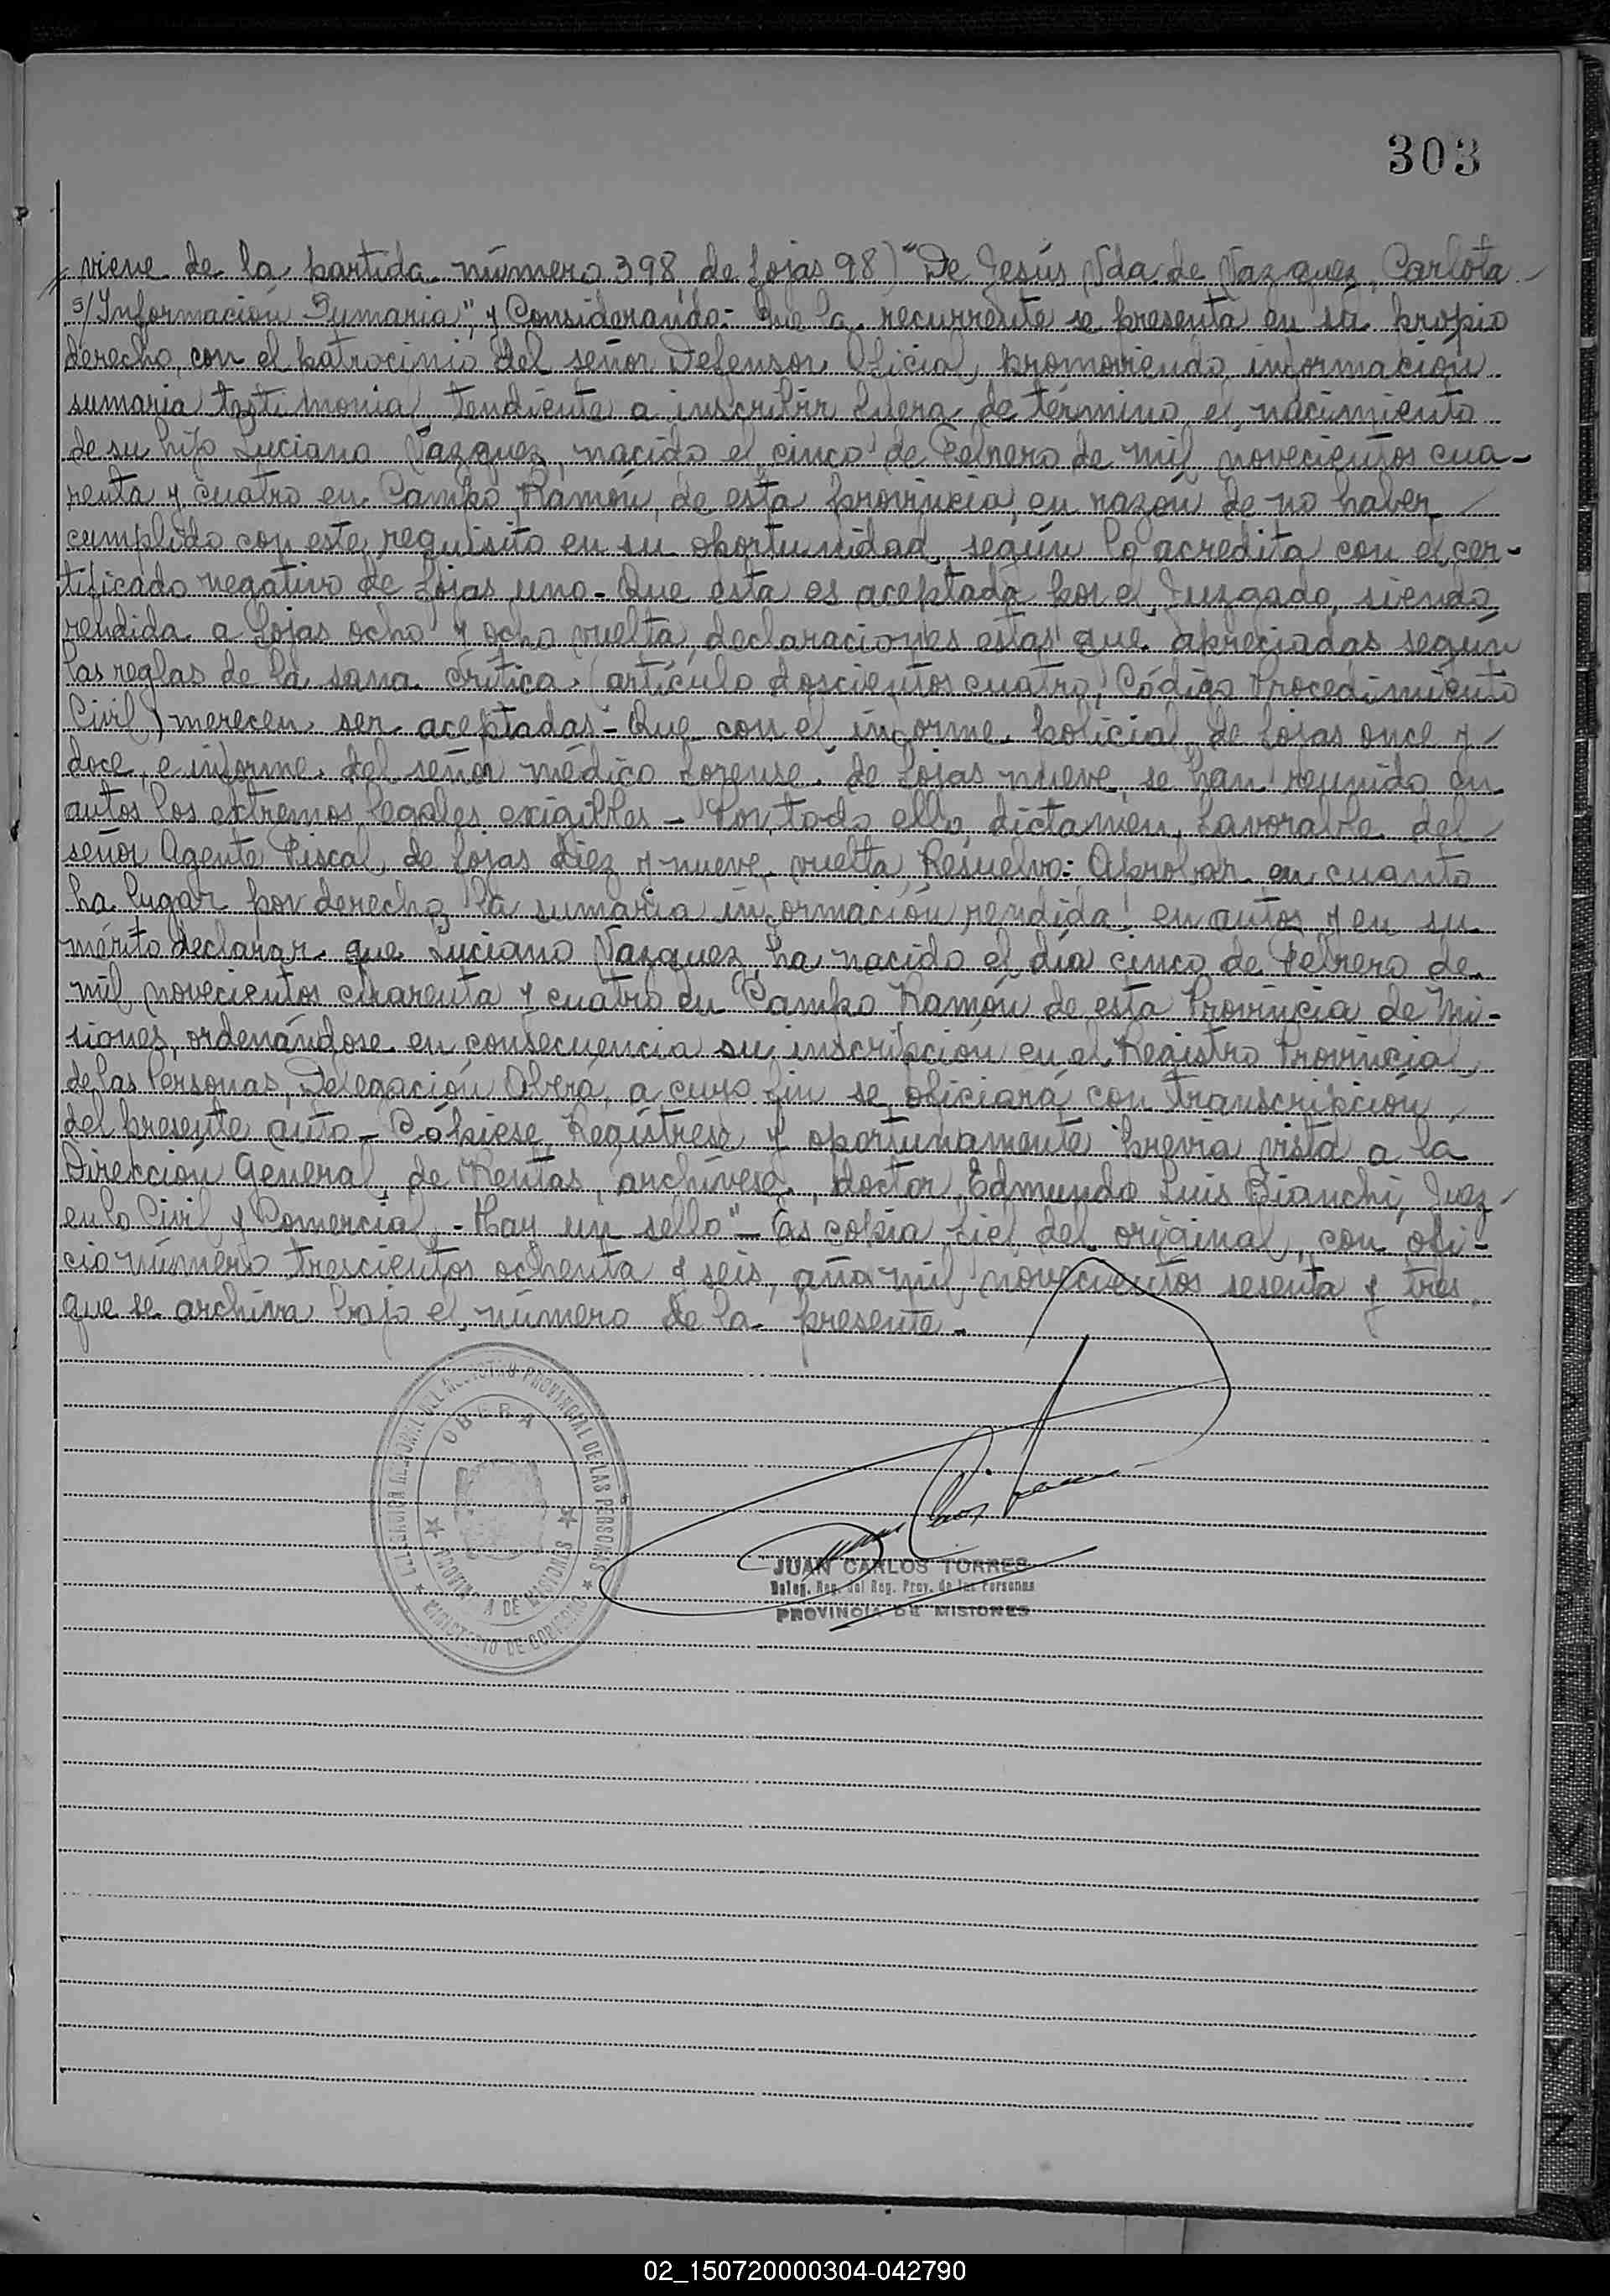 303
// viene de la partida número 398 de fojas 98) "De Jesús Vda. de Vazquez, Carlota
s/Información Sumaria", y Considerando:- Que la recurrente se presenta en su propio
derecho, con el patrocinio del señor Defensor Oficial, promoviendo información
sumaria testimonial tendiente a inscribir fuera de término el nacimiento
de su hijo Luciano Vazquez, nacido el cinco de Febrero de mil novecientos cua-
renta y cuatro en Campo Ramón, de esta provincia, en razón de no haber
cumplido con este requisito en su oportunidad, según lo acredita con el cer-
tificado negativo de fojas uno.- Que esta es aceptada por el Juzgado, siendo
rendida a fojas ocho y ocho vuelta, declaraciones estas que apreciadas según
las reglas de la sana crítica (artículo doscientos cuatro, Código Procedimiento
Civil) merecen ser aceptadas.- Que con el informe policial de fojas once y
doce, e informe del señor médico forense de fojas nueve, se han reunido en
autos los extremos legales exigibles.- Por todo ello, dictamen favorable del
señor Agente Fiscal de fojas diez y nueve vuelta, Resuelvo: Aprobar en cuanto
ha lugar por derecho la sumaria información rendida en autos y en su
mérito declarar que Luciano Vazquez ha nacido el día cinco de Febrero de
mil novecientos cuarenta y cuatro en Campo Ramón de esta Provincia de Mi-
siones, ordenándose en consecuencia su inscripción en el Registro Provincial
de las Personas, Delegación Oberá, a cuyo fin se oficiará con transcripción
del presente auto.- Cópiese, Regístrese y oportunamente previa vista a la
Dirección General de Rentas, archívese, doctor Edmundo Luis Bianchi, Juez
en lo Civil y Comercial.- Hay un sello".- Es copia fiel del original, con ofi-
cio número trescientos ochenta y seis, año mil novecientos sesenta y tres
que se archiva bajo el número de la presente.-
DELEGACION REGIONAL DEL REGISTRO PROVINCIAL DE LAS PERSONAS
OBERA
PROVINCIA DE MISIONES
MINISTERIO DE GOBIERNO
JUAN CARLOS TORRES
Deleg. Reg. del Reg. Prov. de las Personas
PROVINCIA DE MISIONES
02_150720000304-042790